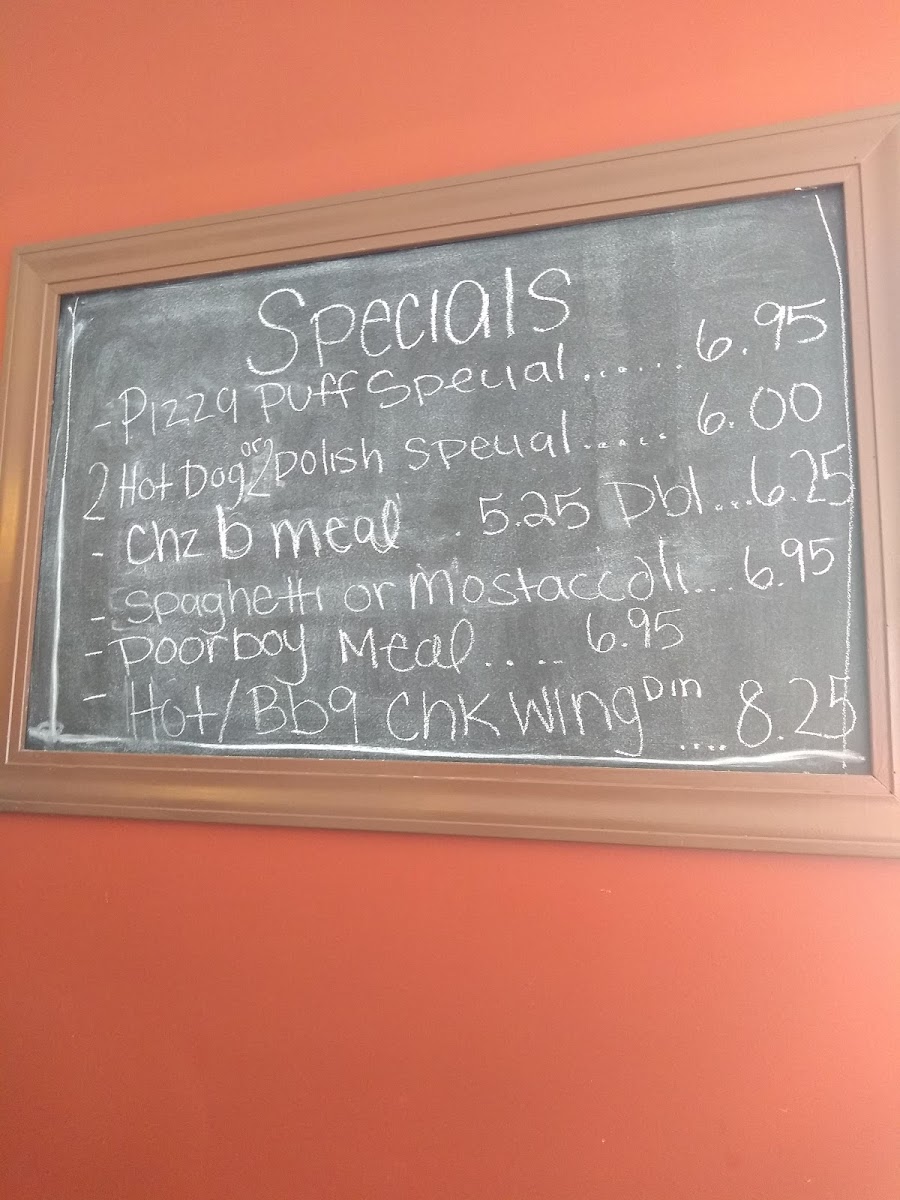 Specials
- Pizza Puff Special....... 6.95
2 Hot Dog or 2 polish special....... 6.00
- Chz b meal . 5.25 Dbl...6.25
- Spaghetti or Mostaccoli... 6.95
- Poorboy Meal.... 6.95
- Hot/Bbq Chk Wing Din .... 8.25